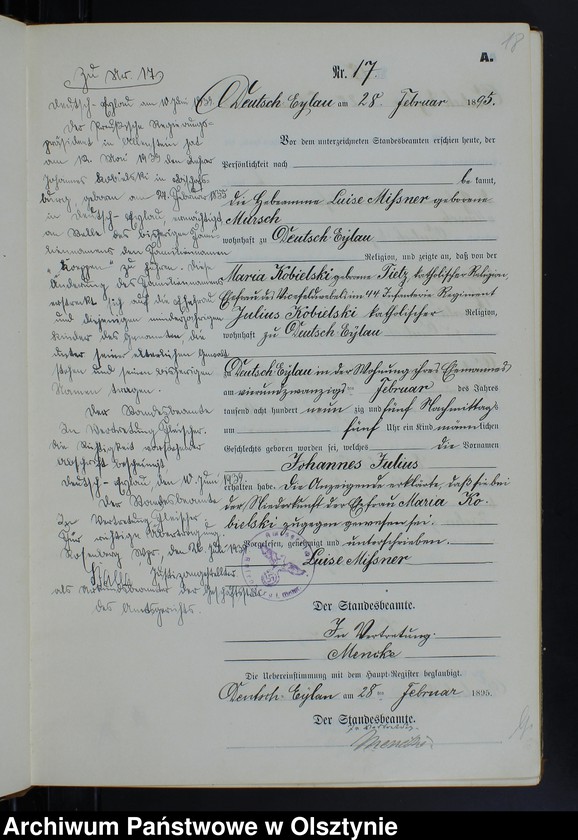 18
A.
Nr. 17
Deutsch Eylau am 28 Februar 1895.
Vor dem unterzeichneten Standesbeamten erschien heute, der
Persönlichkeit nach
be kannt,
die Hebeamme Luise Mißner geborene
Mürsch
wohnhaft zu Deutsch Eylau
Religion, und zeigte an, daß von der
Maria Kobielski geborene Tietz, katholischer Religion,
Ehefrau des Vicefeldwebels im 44 Infanterie Regiment
Julius Kobielski katholischer Religion,
wohnhaft zu Deutsch Eylau
zu Deutsch Eylau in der Wohnung ihres Ehemannes
am vierundzwanzigsten Februar des Jahres
tausend acht hundert neun zig und fünf Nachmittags
um fünf Uhr ein Kind männlichen
Geschlechts geboren worden sei, welches die Vornamen
Johannes Julius
erhalten habe. Die Anzeigende erklärte, daß sie bei
der Niederkunft der Ehefrau Maria Ko-
bielski zugegen gewesen sei.
Vorgelesen, genehmigt und unterschrieben.
Luise Mißner
Der Standesbeamte.
In Vertretung.
Mencke
Die Uebereinstimmung mit dem Haupt-Register beglaubigt.
Deutsch Eylau am 28 ten Februar 1895.
Der Standesbeamte.
In Vertretung
Mencke
Zu Nr. 17
Deutsch-Eylau am 10 Juni 1939.
Der Preußische Regierungs-
präsident in Allenstein hat
am 12. Mai 1939 dem
Johannes Kobielski in
burg, geboren am 24. Februar 1895
in Deutsch-Eylau, ermächtigt
an Stelle des bisherigen Fami-
liennamens den Familiennamen
"Koppen" zu führen. Diese
Änderung des Familiennamens
erstreckt sich auf die Ehefrau
und diejenigen minderjährigen
Kinder des Genannten, die
unter seiner elterlichen Gewalt
stehen und seinen bisherigen
Namen tragen.
Der Standesbeamte
In Vertretung Gleischer.
Die Richtigkeit vorstehender
Abschrift bescheinigt
Deutsch-Eylau, den 10. Juni 1939.
Der Standesbeamte
In Vertretung Gleischer
Für richtige Übertragung
Rosenberg Wpr. den 26. Juli 1939
Justizangestellter
als Urkundsbeamter der Geschäftsstelle
des Amtsgerichts.
Archiwum Państwowe w Olsztynie